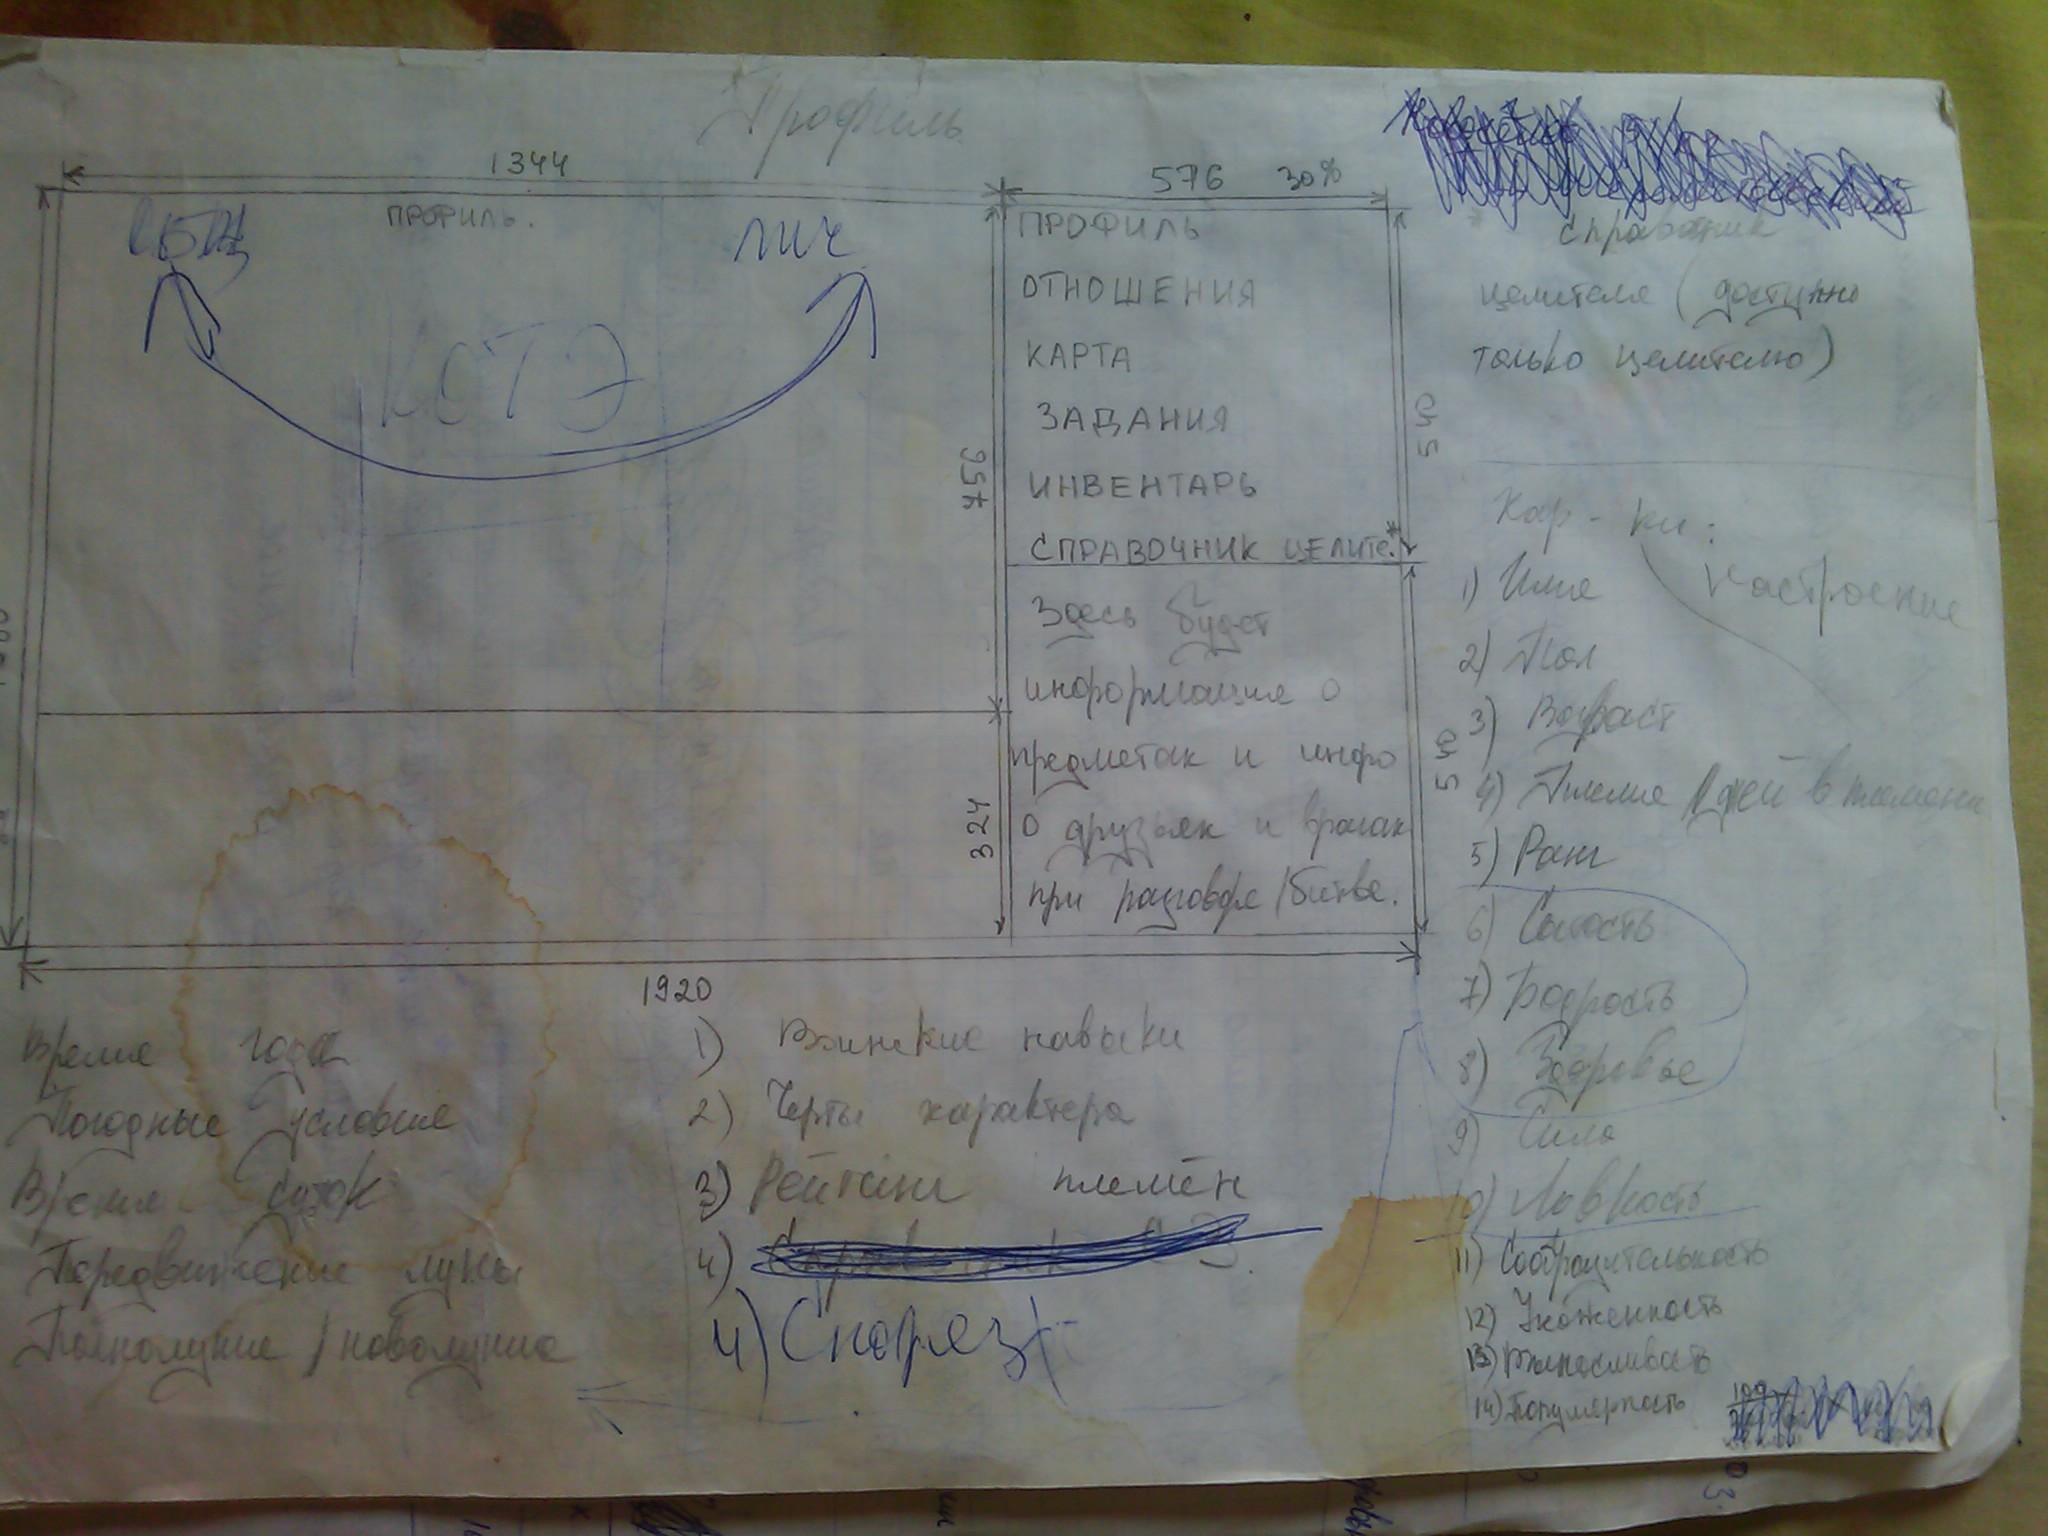 Профиль
1344
576 30%
ПРОФИЛЬ.
ЛИЧ
ПРОФИЛЬ
ОТНОШЕНИЯ
КАРТА
ЗАДАНИЯ
ИНВЕНТАРЬ
СПРАВОЧНИК ЦЕЛИТЕ.*
756
324
540
540
Здесь будет
информация о
предметах и инфо
о друзьях и врагах
при разговоре/битве.
1920
* Справочник
целителя (доступно
только целителю)
Хар-ки:
Настроение
1) Имя
2) Пол
3) Возраст
4) Племя / дней в племени
5) Ранг
6) Сытость
7) Бодрость
8) Здоровье
9) Сила
10) Ловкость
11) Сообразительность
12) Ухоженность
13) Выносливость
14) Популярность
Время года
Погодные условие
Время суток
Передвижение луны
Полнолуние / новолуние
1) Воинские навыки
2) Черты характера
3) Рейтинг племён
4)
4)